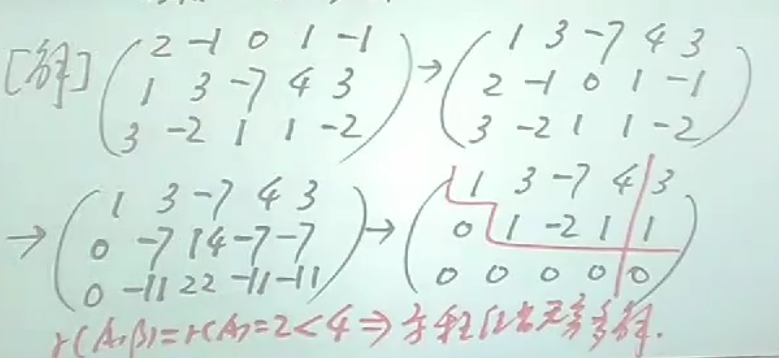 [解] (2 -1 0 1 -1
1 3 -7 4 3
3 -2 1 1 -2) → (1 3 -7 4 3
2 -1 0 1 -1
3 -2 1 1 -2)
→ (1 3 -7 4 3
0 -7 14 -7 -7
0 -11 22 -11 -11) → (1 3 -7 4 | 3
0 1 -2 1 | 1
0 0 0 0 | 0)
r(A,β)=r(A)=2<4 ⇒ 方程组有无穷多解.